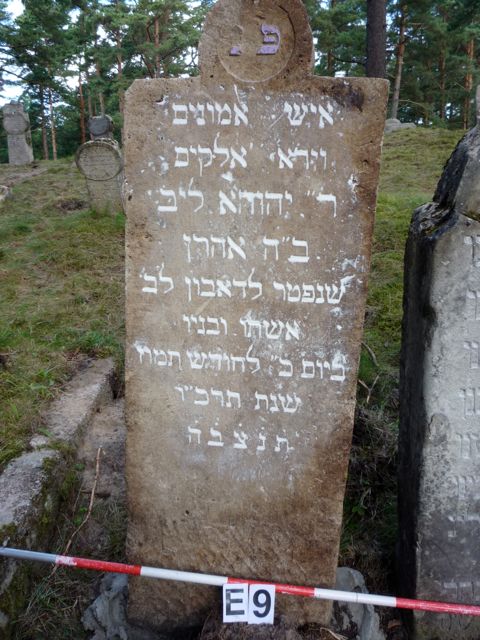 פ נ
איש אמונים
וירא אלקים
ר' יהודא ליב
ב"ה אהרן
שנפטר לדאבון לב
אשתו ובניו
ביום כ' לחודש תמוז
שנת תרכ"ו
ת נ צ ב ה
E9